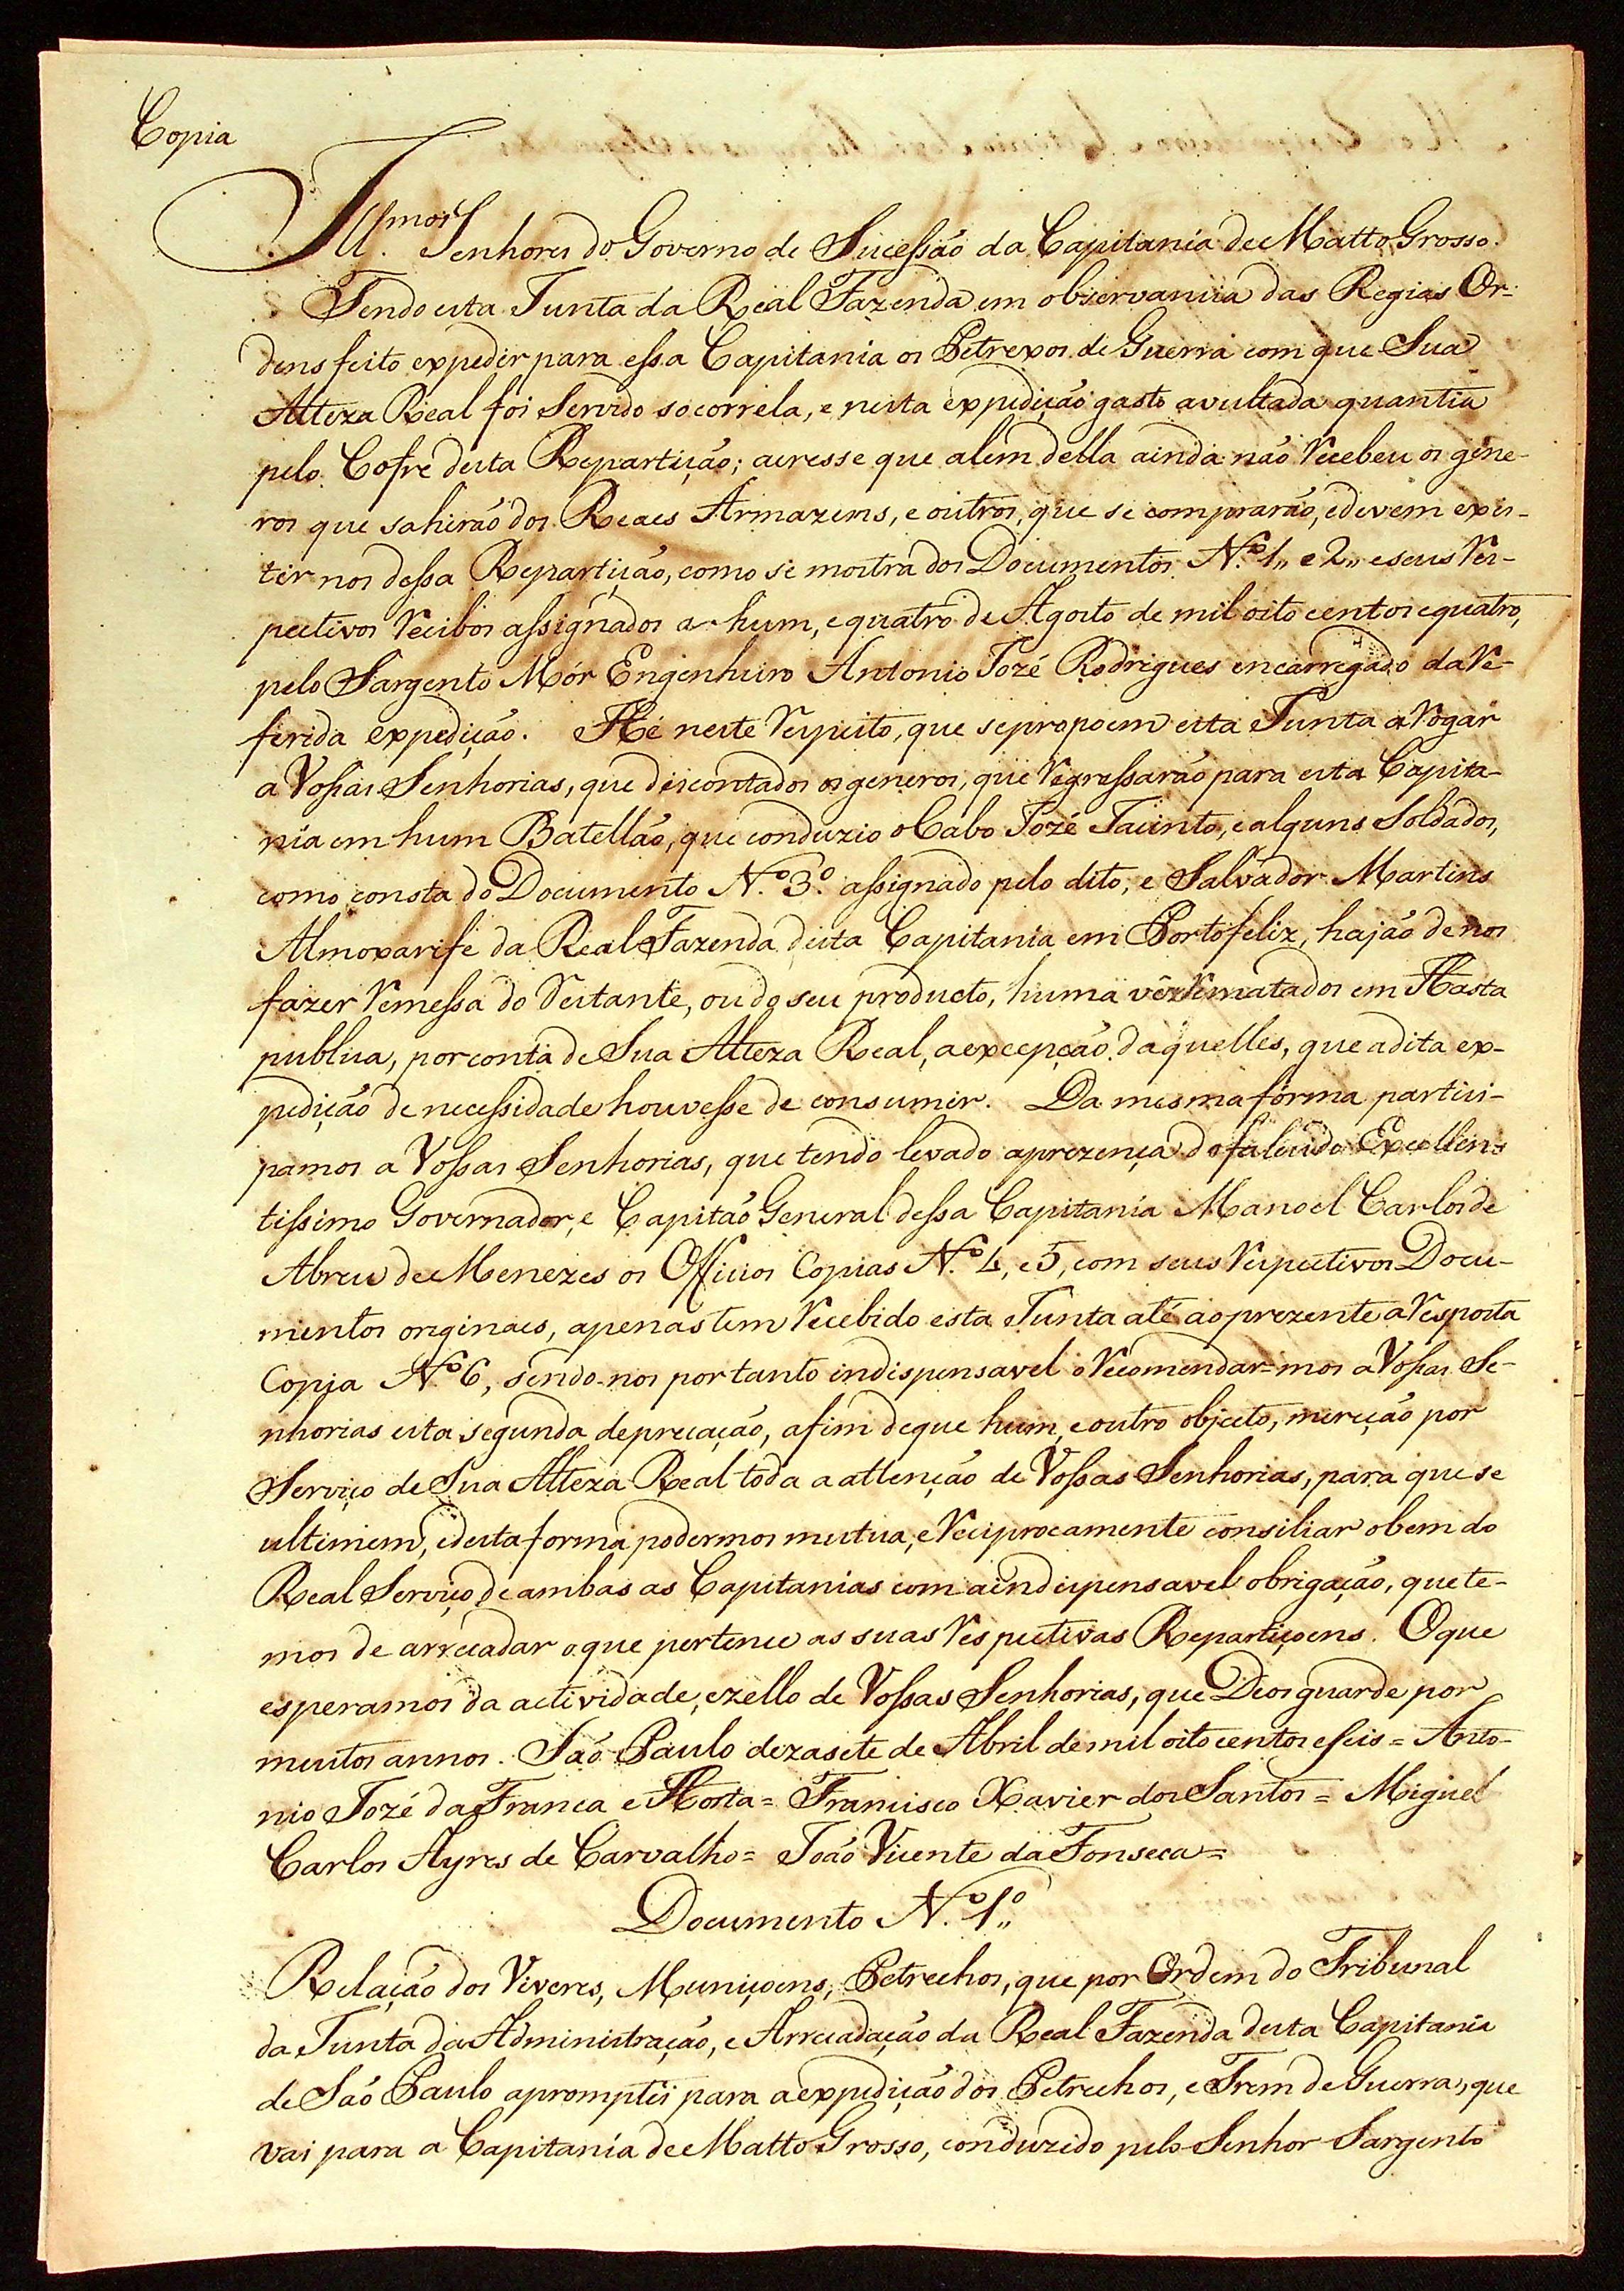 Copia
Ill.mos Senhores do Governo de Sucessão da Capitania de Matto Grosso.
Tendo esta Junta da Real Fazenda em observancia das Regias Or-
dens feito expedir para essa Capitania os Petrexos de Guerra com que Sua
Alteza Real foi Servido socorrela, e nesta expedição gasto avultada quantia
pelo Cofre desta Repartição; acresse que alem della ainda não recebeu os gene-
ros que sahirão dos Reaes Armazems, e outros, que se comprarão, e devem exis-
tir nos dessa Repartição, como se mostra dos Documentos N.º 1,, e 2,, e seus res-
pectivos recibos assignados a hum, e quatro de Agosto de mil oito centos e quatro,
pelo Sargento Mór Engenheiro Antonio Jozé Rodrigues encarregado da re-
ferida expedição. Hé neste respeito, que se propoem esta Junta a rogar
a Vossas Senhorias, que descontados os generos, que regressarão para esta Capita-
nia em hum Batellão, que conduzio o Cabo Jozé Jacinto, e alguns Soldados,
como consta do Documento N.º 3.º assignado pelo dito, e Salvador Martins
Almoxarife da Real Fazenda desta Capitania em Portofeliz, hajão de nos
fazer remessa do restante, ou do seu producto, huma vêz rematados em Hasta
publica, por conta de Sua Alteza Real, a excepção daquelles, que a dita ex-
pedição de necessidade houvesse de consumir. Da mesma fórma partici-
pamos a Vossas Senhorias, que tendo levado a prezença do falecido Excellen-
tissimo Governador, e Capitão General dessa Capitania Manoel Carlos de
Abreu de Menezes os Officios Copias N.º 4, e 5, com seus respectivos Docu-
mentos originaes, apenas tem recebido esta Junta até ao prezente a resposta
Copia N.º 6, sendo-nos por tanto indispensavel o recomendar-mos a Vossas Se-
nhorias esta segunda deprecação, afim de que hum, e outro objecto, mereção por
Serviço de Sua Alteza Real toda a attenção de Vossas Senhorias, para que se
ultimem, e desta forma podermos mutua, e reciprocamente consiliar o bem do
Real Serviço de ambas as Capitanias com a indispensavel obrigação, que te-
mos de arrecadar o que pertence as suas respectivas Repartiçoens. O que
esperamos da actividade, e zello de Vossas Senhorias, que Deos guarde por
muitos annos. São Paulo dezasete de Abril de mil oito centos e seis = Anto-
nio Jozé da Franca e Horta = Francisco Xavier dos Santos = Miguel
Carlos Ayres de Carvalho = João Vicente da Fonseca =
Documento N.º 1.º,,
Relação dos Viveres, Muniçoens, Petrechos, que por Ordem do Tribunal
da Junta da Administração, e Arrecadação da Real Fazenda desta Capitania
de São Paulo apromptei para a expedição dos Petrechos, e Trem de Guerra, que
vai para a Capitania de Matto Grosso, conduzido pelo Senhor Sargento